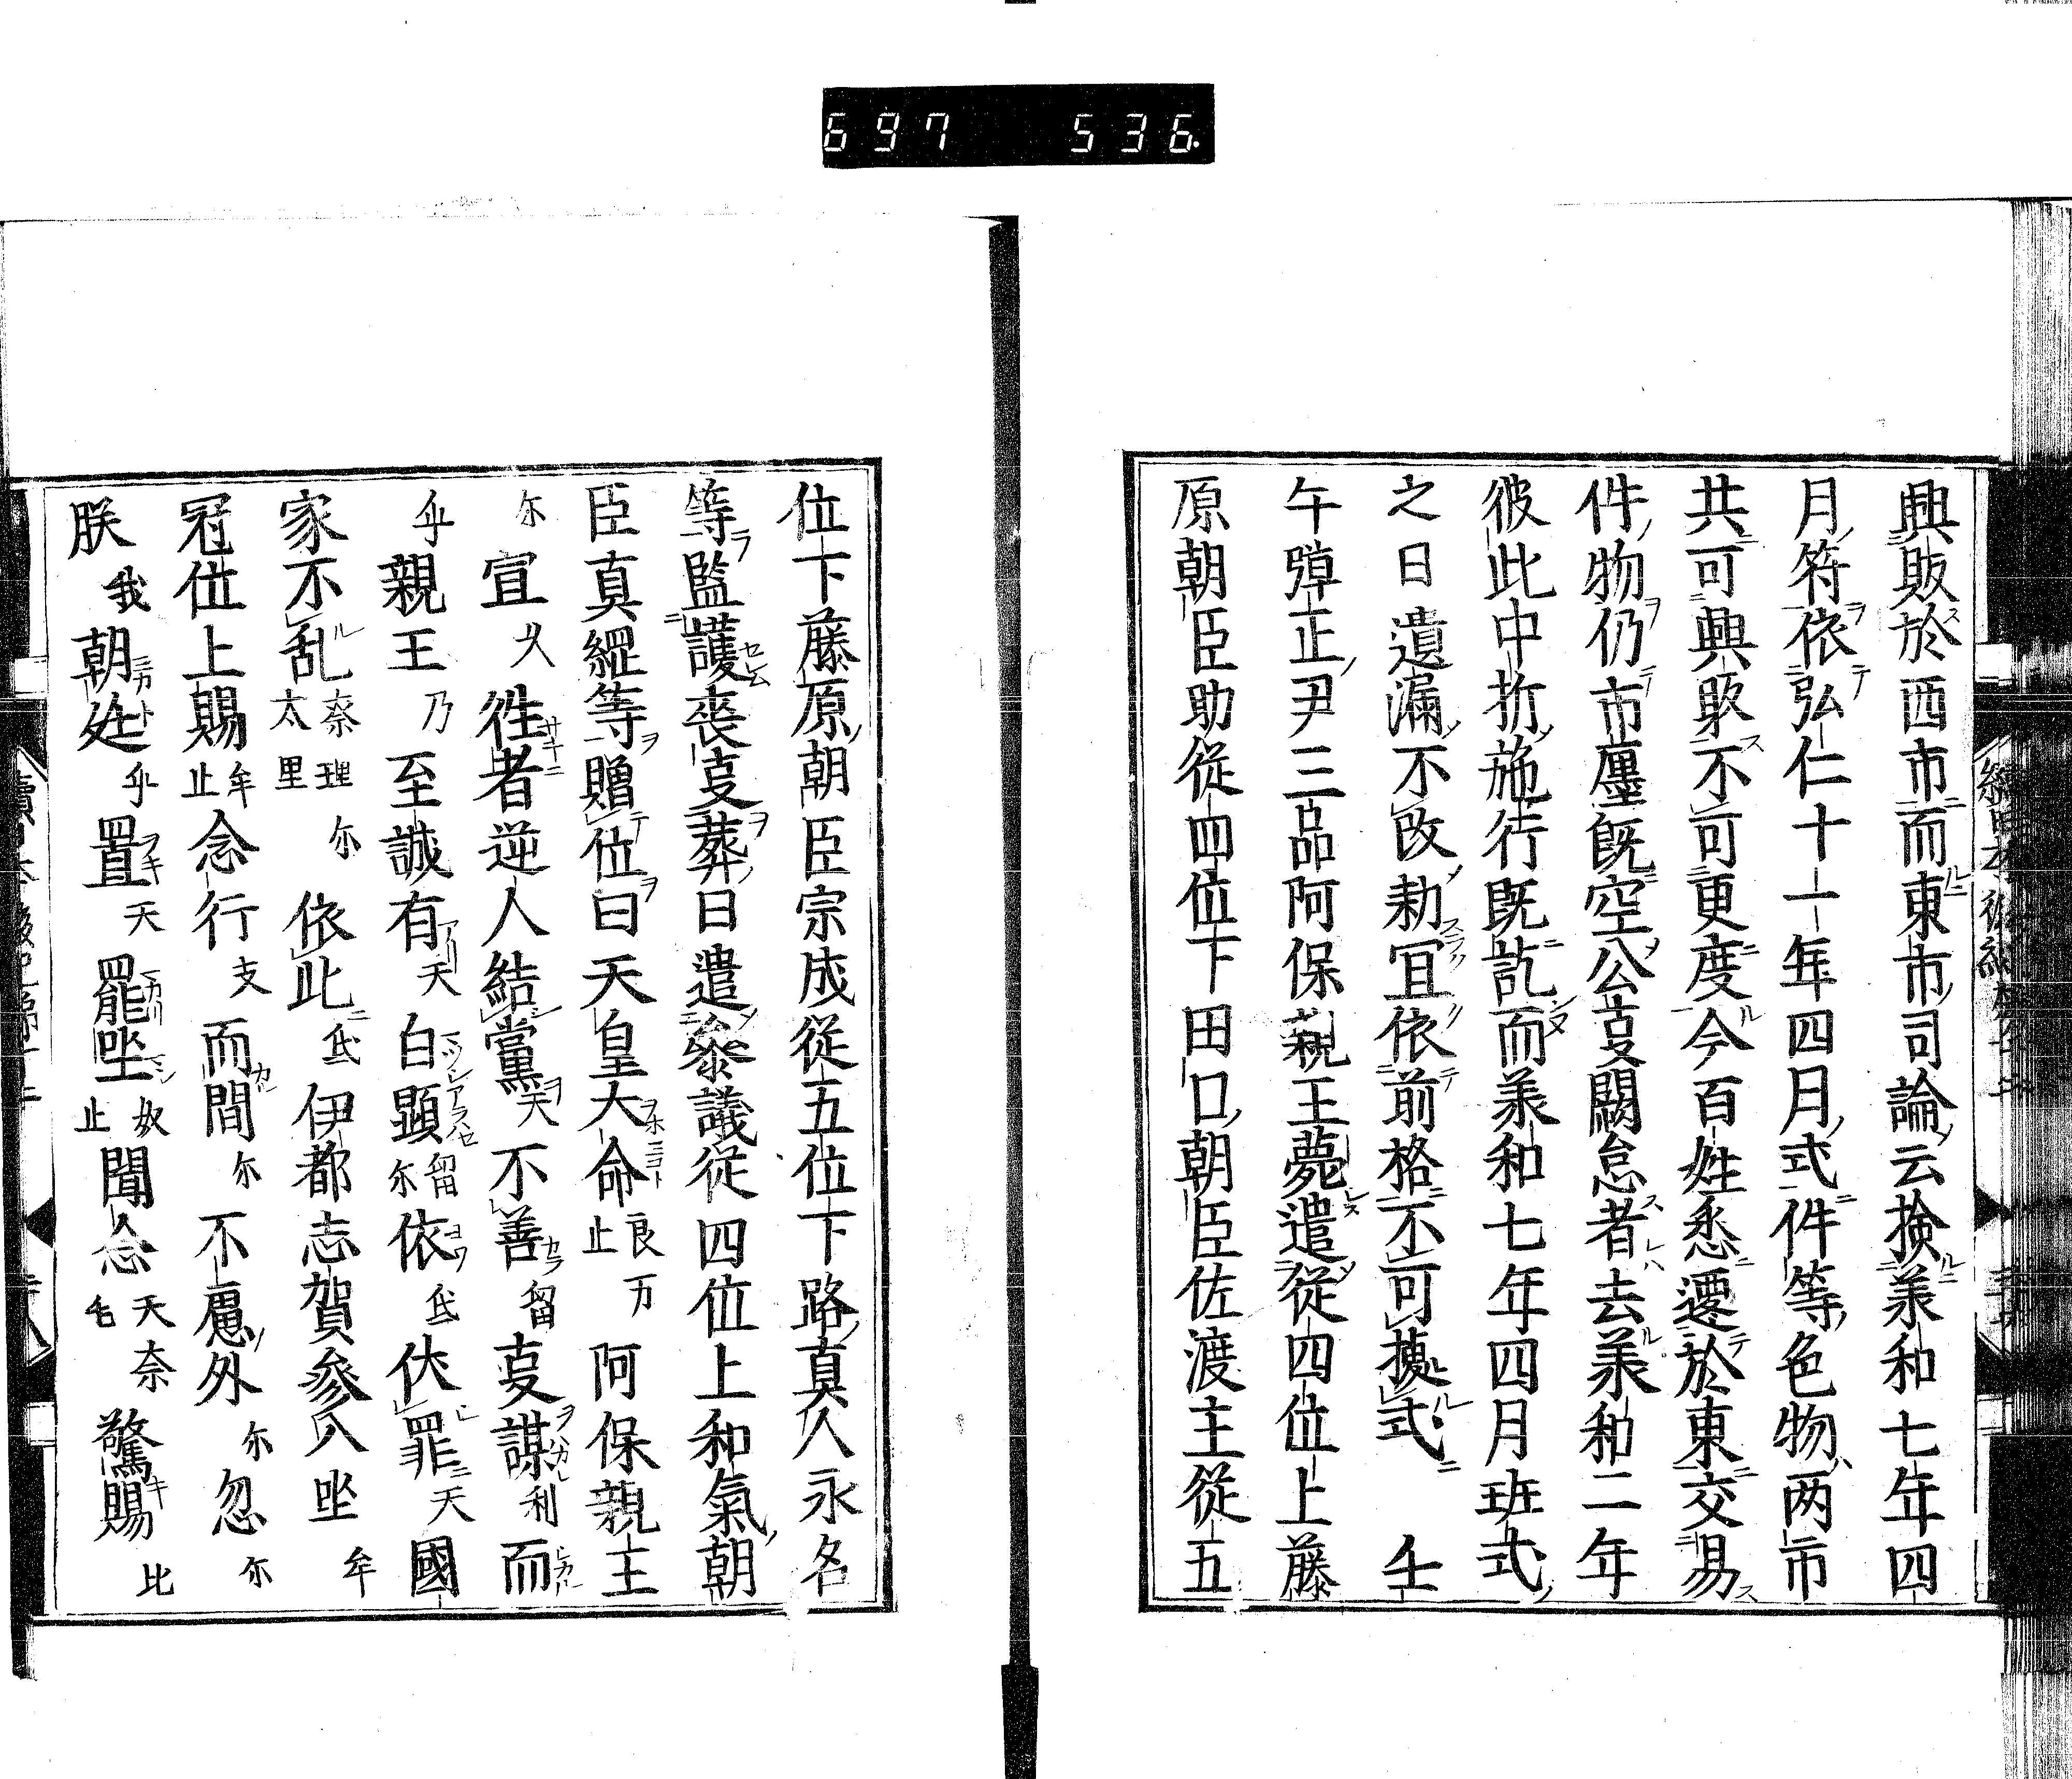 697 536
興販於西市而東市司論云捡羕和七年四
月符依弘仁十一年四月式件等色物两市
共可興販不可更度今百姓悉遷於東交易
件物仍市廛旣空公㕝闕怠者去羕和二年
彼此中折施行既訖而羕和七年四月班式
之日遺漏不改勅冝依前格不可㨿式 壬
午彈正尹三品阿保親王薨遣從四位上藤
原朝臣助從四位下田口朝臣佐渡主從五
位下藤原朝臣宗成從五位下路真人永名
等監護喪㕝葬日遣叅議從四位上和氣朝
臣真綱等贈位曰天皇大命良止万阿保親王
尓宣久徃者逆人結黨天不善留㕝謀利而
乎親王乃至誠有天白顕留尓依氐伏罪天國
家不乱奈太理里尓依此氐伊都志賀參入坐牟
冠位上賜牟止念行支而間尓不慮外尓忽尓
朕我朝廷乎置天罷坐奴止聞念天毛奈驚賜比